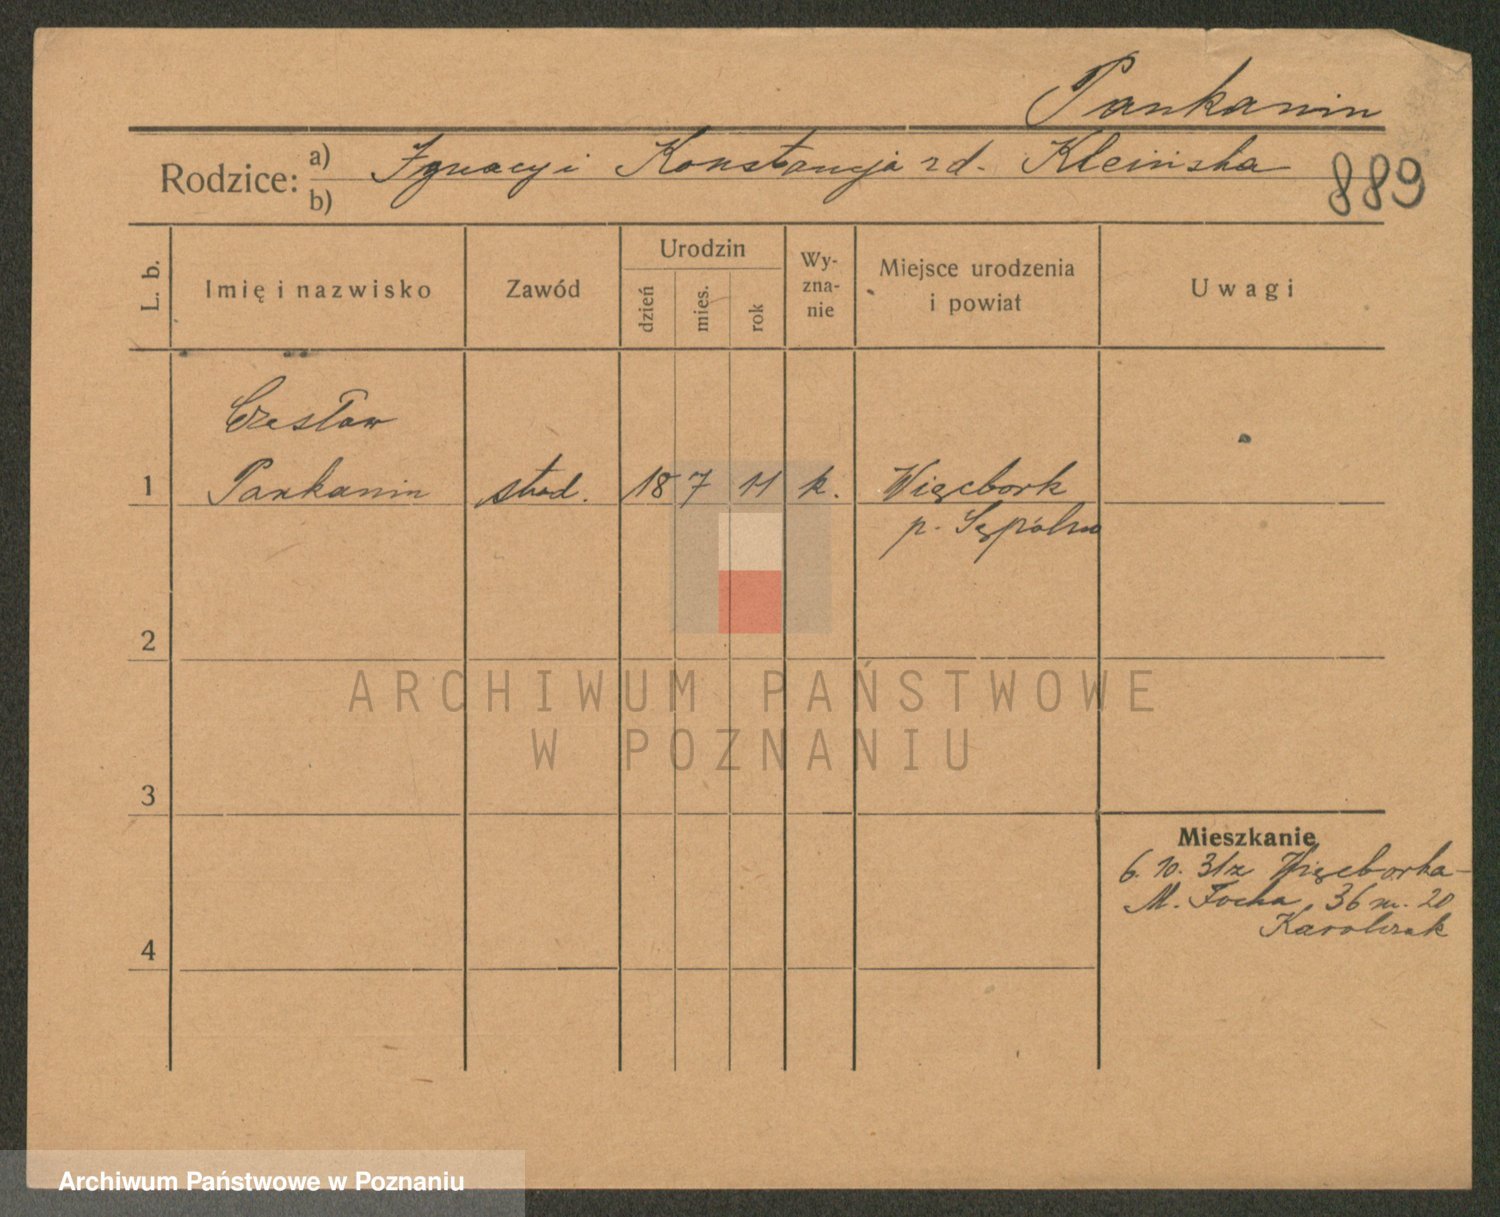 Pankanin
Rodzice: a) Ignacy i Konstancja zd. Kleińska
b)
889
L. b. Imię i nazwisko Zawód Urodzin dzień mies. rok Wy-zna-nie Miejsce urodzenia i powiat Uwagi
Czesław
1 Pankanin stud. 18 7 11 k. Więcbork
p. Sępólno
2
3
4
Mieszkanie
6. 10. 31 z Więcborka -
M. Focha 36 m. 20
Karolczak
ARCHIWUM PAŃSTWOWE
W POZNANIU
Archiwum Państwowe w Poznaniu